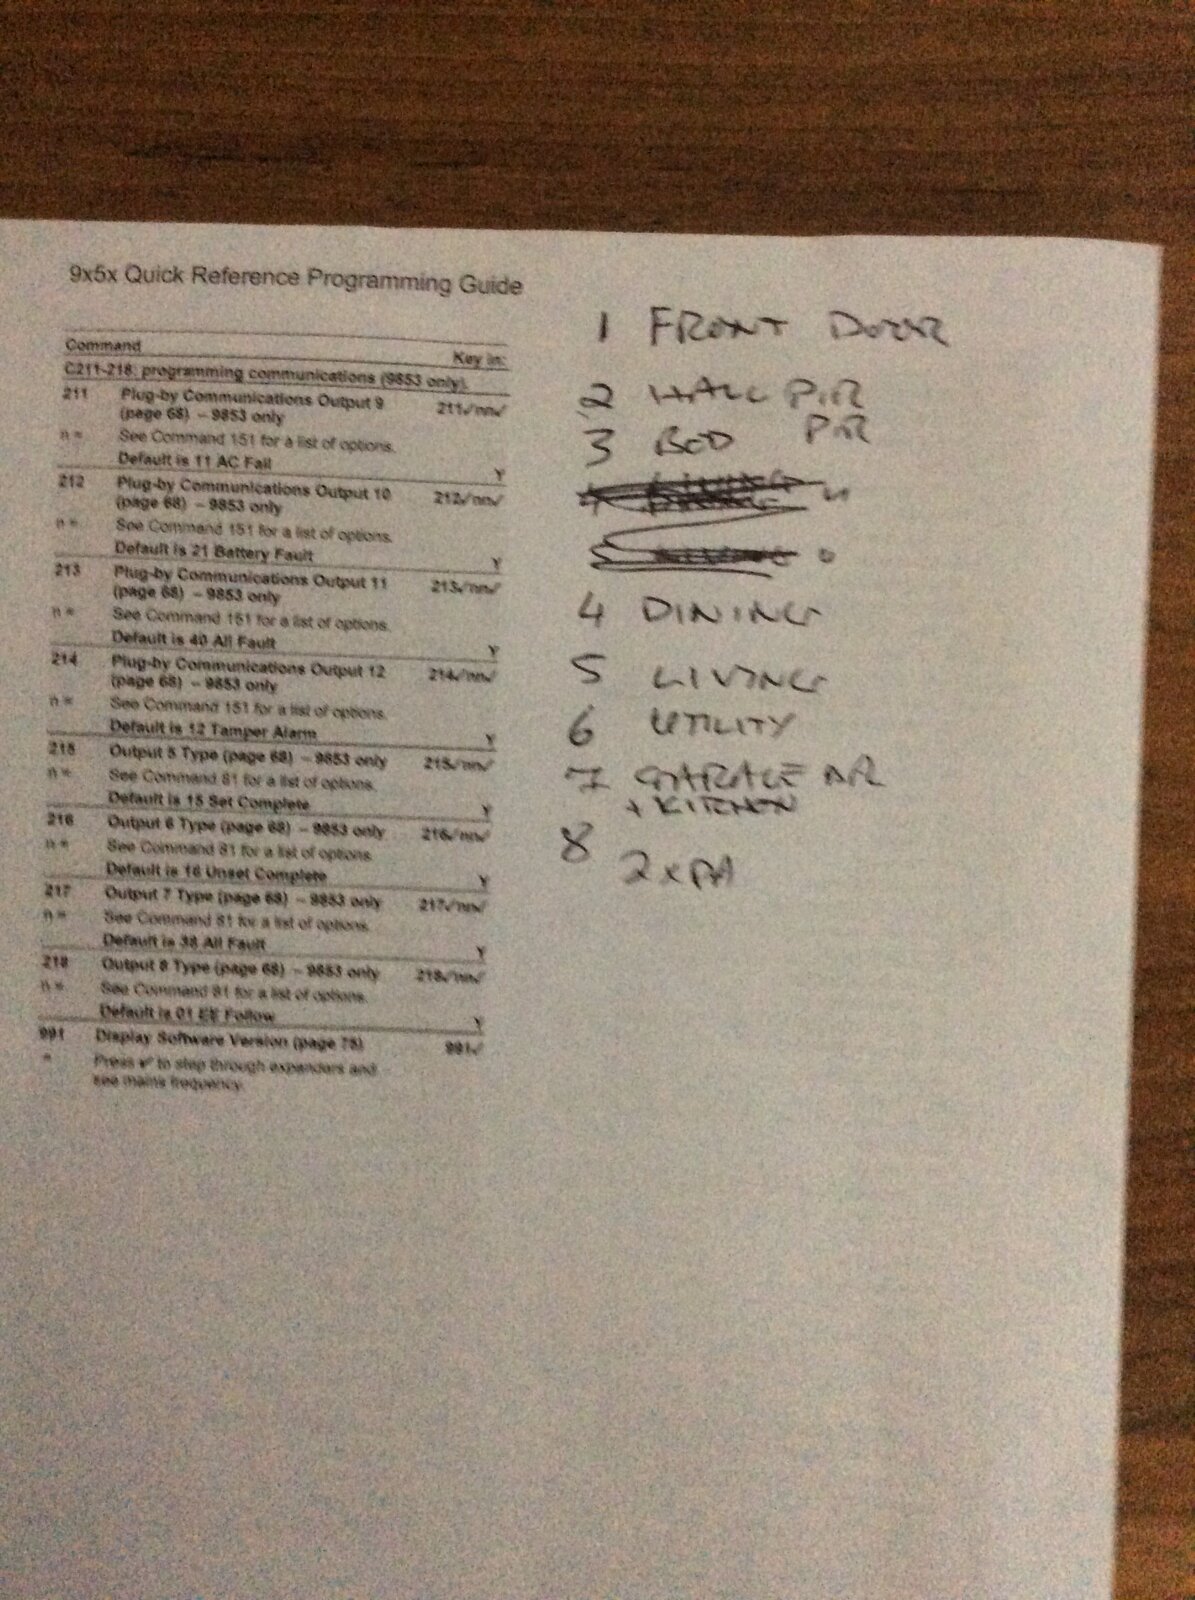 9x5x Quick Reference Programming Guide
Command Key in:
C211-218: programming communications (9853 only).
211 Plug-by Communications Output 9 211✓nn✓
(page 68) – 9853 only
n = See Command 151 for a list of options.
Default is 11 AC Fail Y
212 Plug-by Communications Output 10 212✓nn✓
(page 68) – 9853 only
n = See Command 151 for a list of options.
Default is 21 Battery Fault Y
213 Plug-by Communications Output 11 213✓nn✓
(page 68) – 9853 only
n = See Command 151 for a list of options.
Default is 40 All Fault Y
214 Plug-by Communications Output 12 214✓nn✓
(page 68) – 9853 only
n = See Command 151 for a list of options.
Default is 12 Tamper Alarm Y
215 Output 5 Type (page 68) – 9853 only 215✓nn✓
n = See Command 81 for a list of options.
Default is 15 Set Complete Y
216 Output 6 Type (page 68) – 9853 only 216✓nn✓
n = See Command 81 for a list of options.
Default is 16 Unset Complete Y
217 Output 7 Type (page 68) – 9853 only 217✓nn✓
n = See Command 81 for a list of options.
Default is 38 All Fault Y
218 Output 8 Type (page 68) – 9853 only 218✓nn✓
n = See Command 81 for a list of options.
Default is 01 EE Follow Y
991 Display Software Version (page 75) 991✓
Press ✓ to step through expanders and
see mains frequency.
1 FRONT DOOR
2 HALL PIR
3 BED PIR
4 DINING
5 LIVING
6 UTILITY
7 GARAGE DR
+ KITCHEN
8 2 x PA